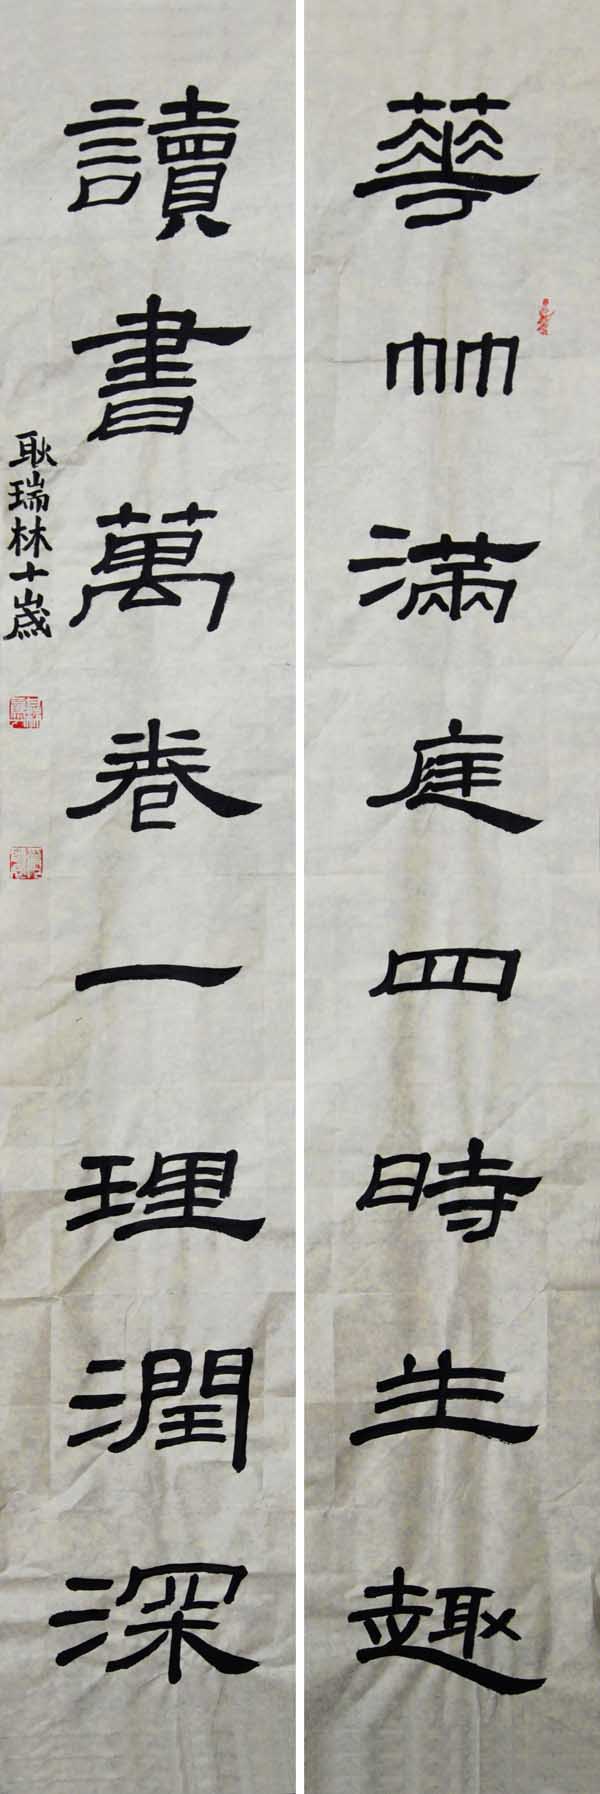 華竹滿庭四時生趣
讀書萬卷一理潤深
耿瑞林十歲